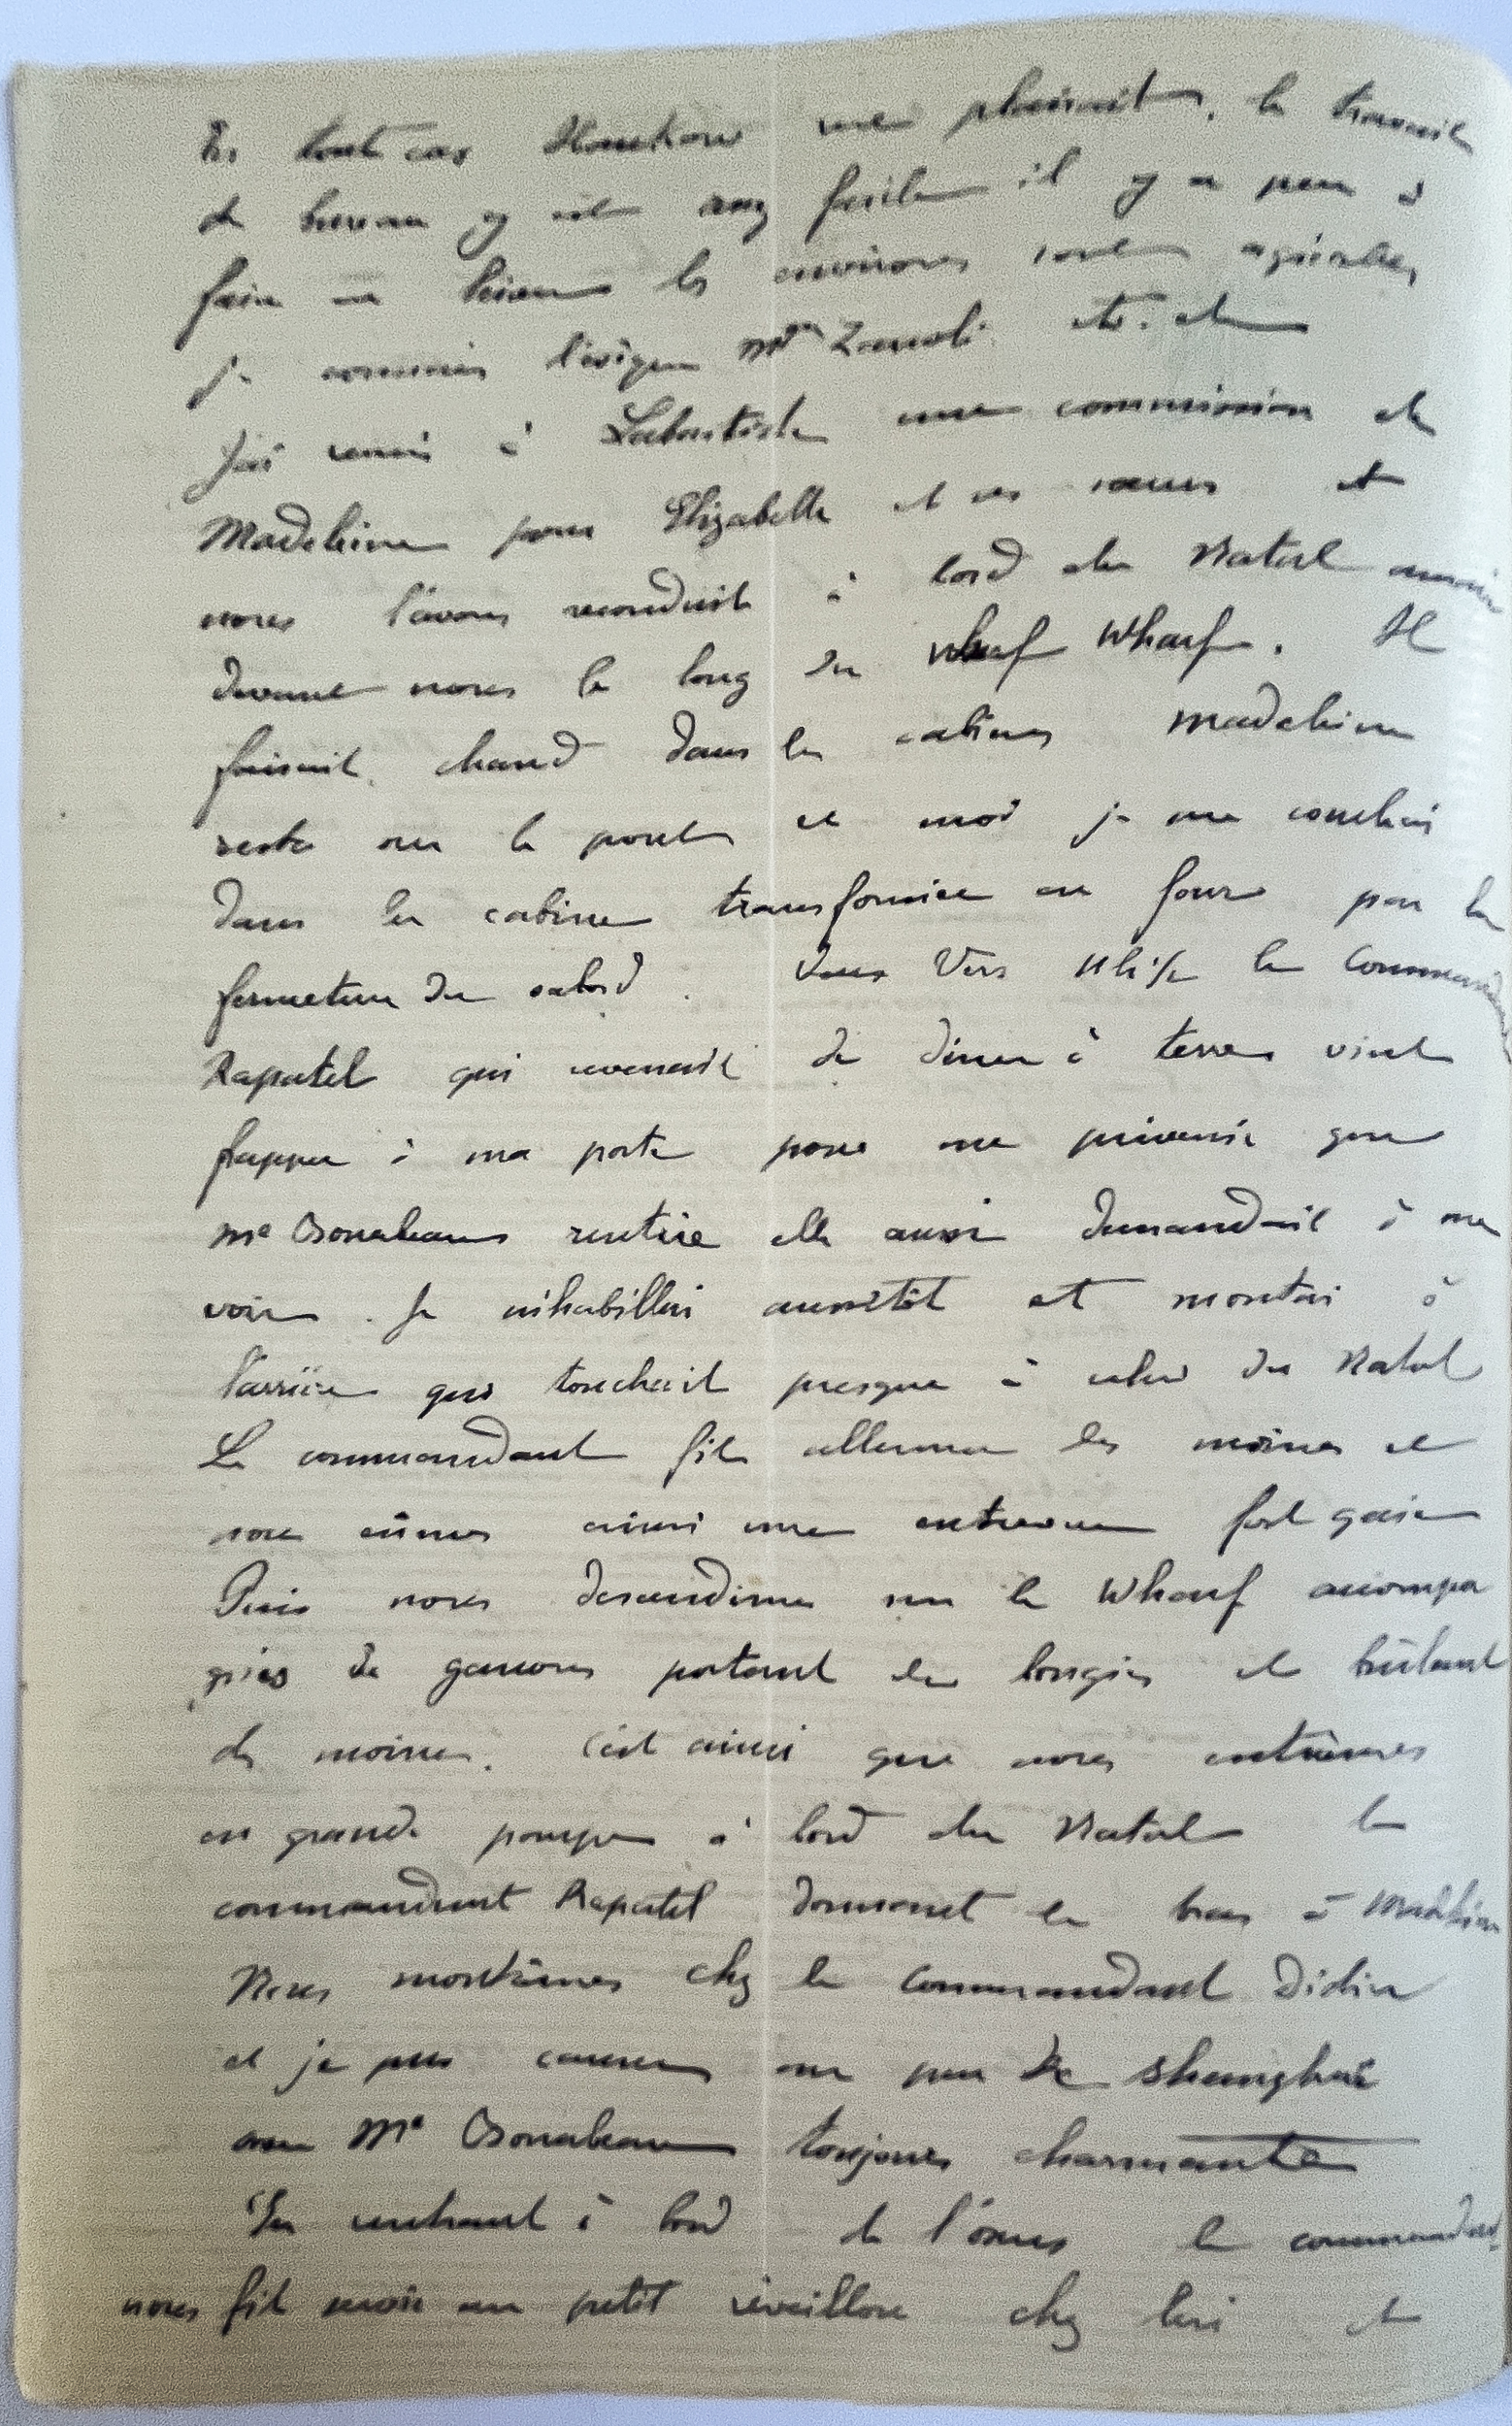 En tout cas Hankow me plairait, le travail
de bureau y est assez facile il y a peu à
faire les environs sont agréables,
je connais l'évêque Mgr Zanoli etc. etc
J'ai remis à Labastide une commission de
Madeleine pour Elizabeth et ses sœurs et
nous l'avons reconduit à bord du Natal amarré
devant nous le long du wharf Wharf. Il
faisait chaud dans les cabines Madeleine
resta sur le pont et moi je me couchai
dans la cabine transformée en four par la
fermeture du sabord. Vers le Command
Rapatel qui revenait de diner à terre vint
frapper à ma porte pour me prévenir que
Me rentrée elle aussi demandait à me
voir. Je m'habillai aussitôt et montai à
l'arrière qui touchait presque à celui du Natal
Le commandant fit allumer les et
nous eûmes ainsi une entrevue fort gaie
Puis nous descendîmes sur le Wharf accompa
gnés de garçons portant des bougies et brûlant
des. C'est ainsi que nous entrâmes
en grande pompe à bord du Natal le
commandant Rapatel donnant le bras à Madeleine
Nous montâmes chez le Commandant Didier
et je pus causer un peu de Shanghaï
avec Me toujours charmante
En rentrant à bord de l' le commandant
nous fit servir un petit réveillon chez lui et